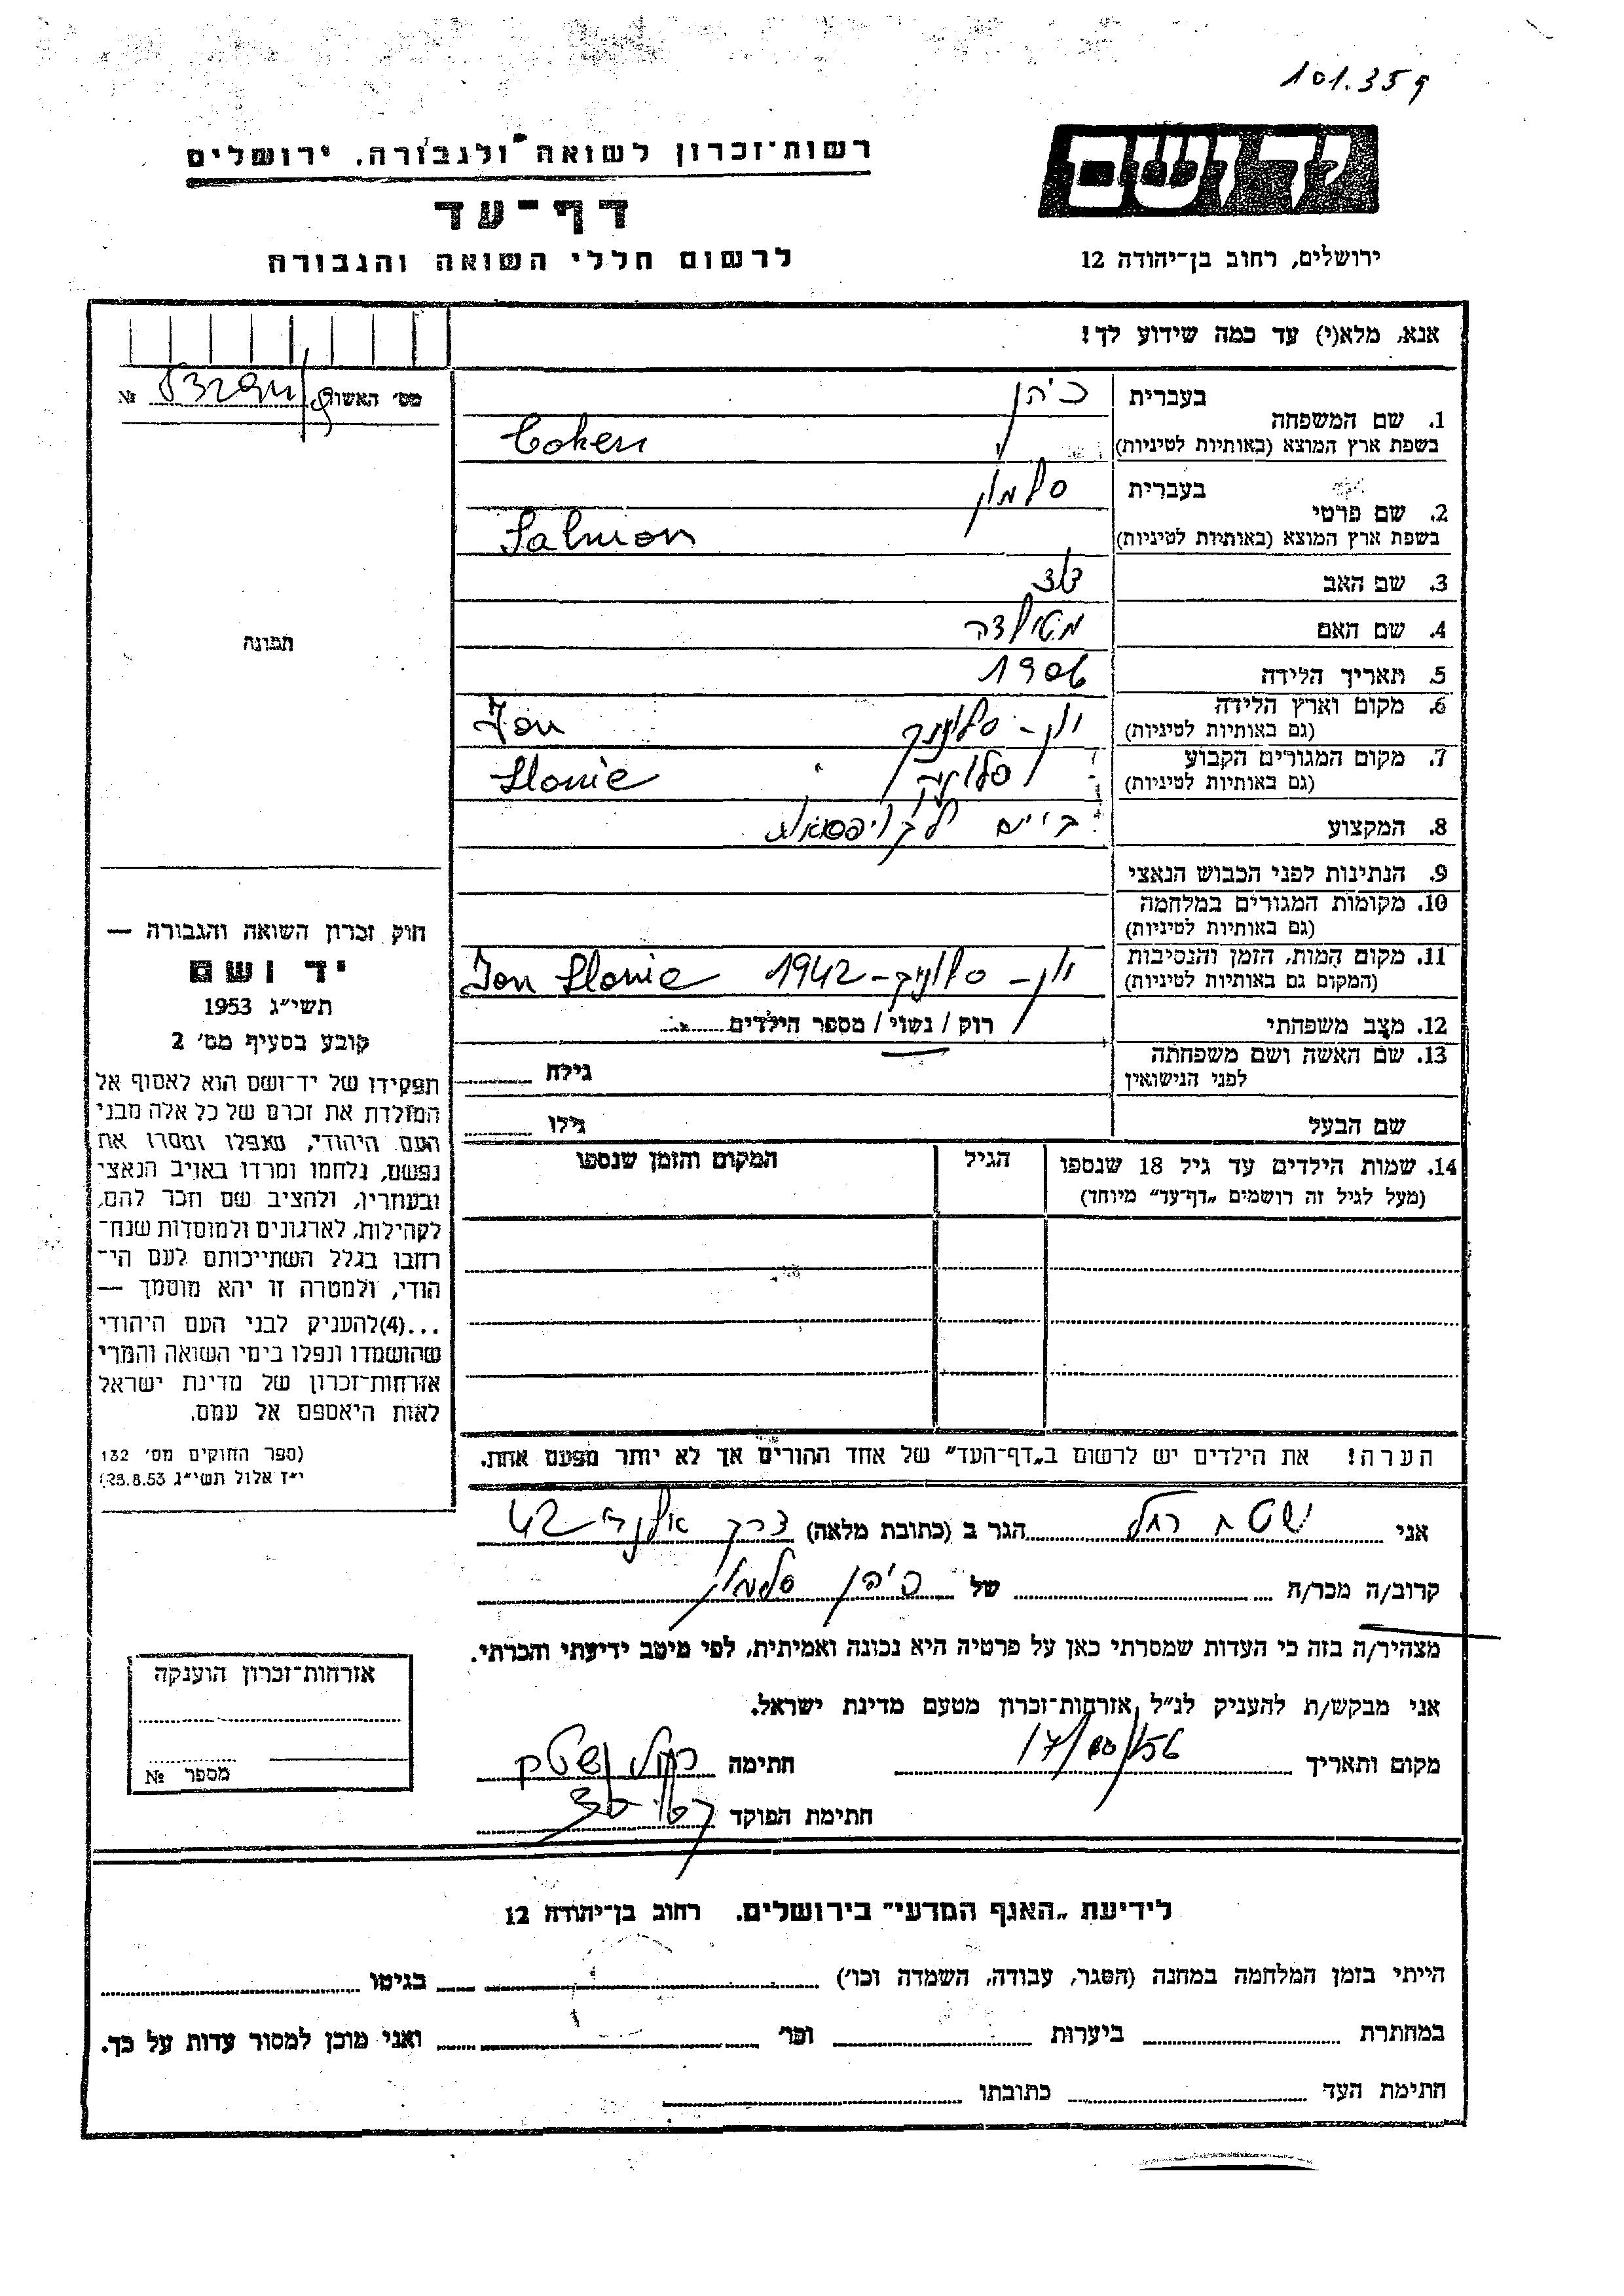 101.359
יד ושם
רשות־זכרון לשואה ולגבורה, ירושלים
דף־עד
לרשום חללי השואה והגבורה
ירושלים, רחוב בן־יהודה 12
אנא, מלא(י) עד כמה שידוע לך!
מס׳ האשור №
1. שם המשפחה
בעברית כהן
בשפת ארץ המוצא (באותיות לטיניות) Cohen
2. שם פרטי
בעברית סלמון
בשפת ארץ המוצא (באותיות לטיניות) Salmon
3. שם האב דוד
4. שם האם מטילדה
5. תאריך הלידה 1906
6. מקום וארץ הלידה
(גם באותיות לטיניות) יון - סלוניק Jon
7. מקום המגורים הקבוע
(גם באותיות לטיניות) Slonic
8. המקצוע
9. הנתינות לפני הכבוש הנאצי
10. מקומות המגורים במלחמה
(גם באותיות לטיניות)
11. מקום המות, הזמן והנסיבות
(המקום גם באותיות לטיניות) יון - סלוניק - 1942 Jon Slonic
12. מצב משפחתי רוק / נשוי / מספר הילדים
13. שם האשה ושם משפחתה
לפני הנישואין גילה
שם הבעל גילו
14. שמות הילדים עד גיל 18 שנספו
(מעל לגיל זה רושמים „דף־עד״ מיוחד)
הגיל
המקום והזמן שנספו
הערה! את הילדים יש לרשום ב„דף־העד״ של אחד ההורים אך לא יותר מפעם אחת.
תמונה
חוק זכרון השואה והגבורה —
יד ושם
תשי״ג 1953
קובע בסעיף מס׳ 2
תפקידו של יד־ושם הוא לאסוף אל
המולדת את זכרם של כל אלה מבני
העם היהודי, שנפלו ומסרו את
נפשם, נלחמו ומרדו באויב הנאצי
ובעוזריו, ולהציב שם וזכר להם,
לקהילות, לארגונים ולמוסדות שנח־
רבו בגלל השתייכותם לעם הי־
הודי, ולמטרה זו יהא מוסמך —
...(4) להעניק לבני העם היהודי
שהושמדו ונפלו בימי השואה והמרי
אזרחות־זכרון של מדינת ישראל
לאות היאספם אל עמם.
(ספר החוקים מס׳ 132
י״ז אלול תשי״ג 28.8.53)
אני רחל הגר ב (כתובת מלאה) דרך 42
קרוב/ה מכר/ה של כהן סלמון
מצהיר/ה בזה כי העדות שמסרתי כאן על פרטיה היא נכונה ואמיתית, לפי מיטב ידיעתי והכרתי.
אני מבקש/ת להעניק לנ״ל אזרחות־זכרון מטעם מדינת ישראל.
מקום ותאריך חתימה רחל
חתימת הפוקד
אזרחות־זכרון הוענקה
מספר №
לידיעת „האגף המדעי״ בירושלים. רחוב בן־יהודה 12
הייתי בזמן המלחמה במחנה (הסגר, עבודה, השמדה וכו׳) בגיטו
במחתרת ביערות וכו׳ ואני מוכן למסור עדות על כך.
חתימת העד כתובתו